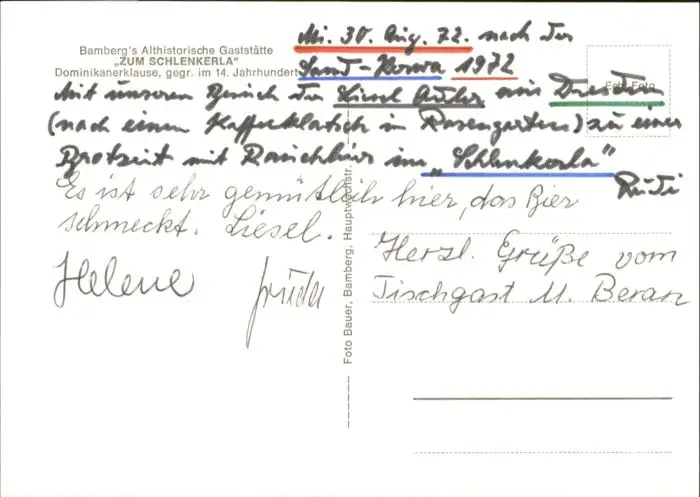 Mi. 30. Aug. 72. nach der
Bamberg's Althistorische Gaststätte
„ZUM SCHLENKERLA"
Sand-Kerwa 1972
Dominikanerklause, gegr. im 14. Jahrhundert
Echt Foto
Mit unseren Besuch der Liesel aus Dresden
(nach einem Kaffeeklatsch im Rosengarten) zu einer
Brotzeit mit Rauchbier im „Schlenkerla"
Rudi
Es ist sehr gemütlich hier, das Bier
schmeckt. Liesel.
Helene
Herzl. Grüße vom
Tischgast M. Beran
Foto Bauer, Bamberg, Hauptwachstr.